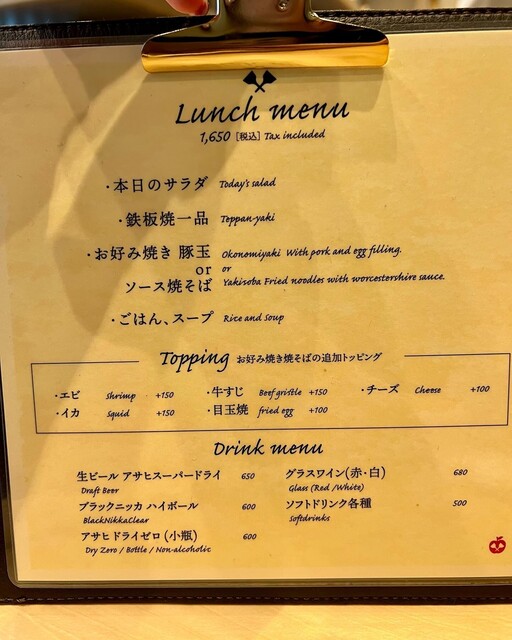 Lunch menu
1,650 [税込] Tax included
・本日のサラダ Today's salad
・鉄板焼一品 Teppan-yaki
・お好み焼き 豚玉 Okonomiyaki With pork and egg filling.
or or
ソース焼そば Yakisoba Fried noodles with worcestershire sauce.
・ごはん、スープ Rice and Soup
Topping お好み焼き焼そばの追加トッピング
・エビ shrimp +150 ・牛すじ Beef gristle +150 ・チーズ Cheese +100
・イカ squid +150 ・目玉焼 fried egg +100
Drink menu
生ビール アサヒスーパードライ 650 グラスワイン(赤・白) 680
Draft Beer Glass (Red /White)
ブラックニッカ ハイボール 600 ソフトドリンク各種 500
BlackNikkaClear Softdrinks
アサヒドライゼロ (小瓶) 600
Dry Zero / Bottle / Non-alcoholic